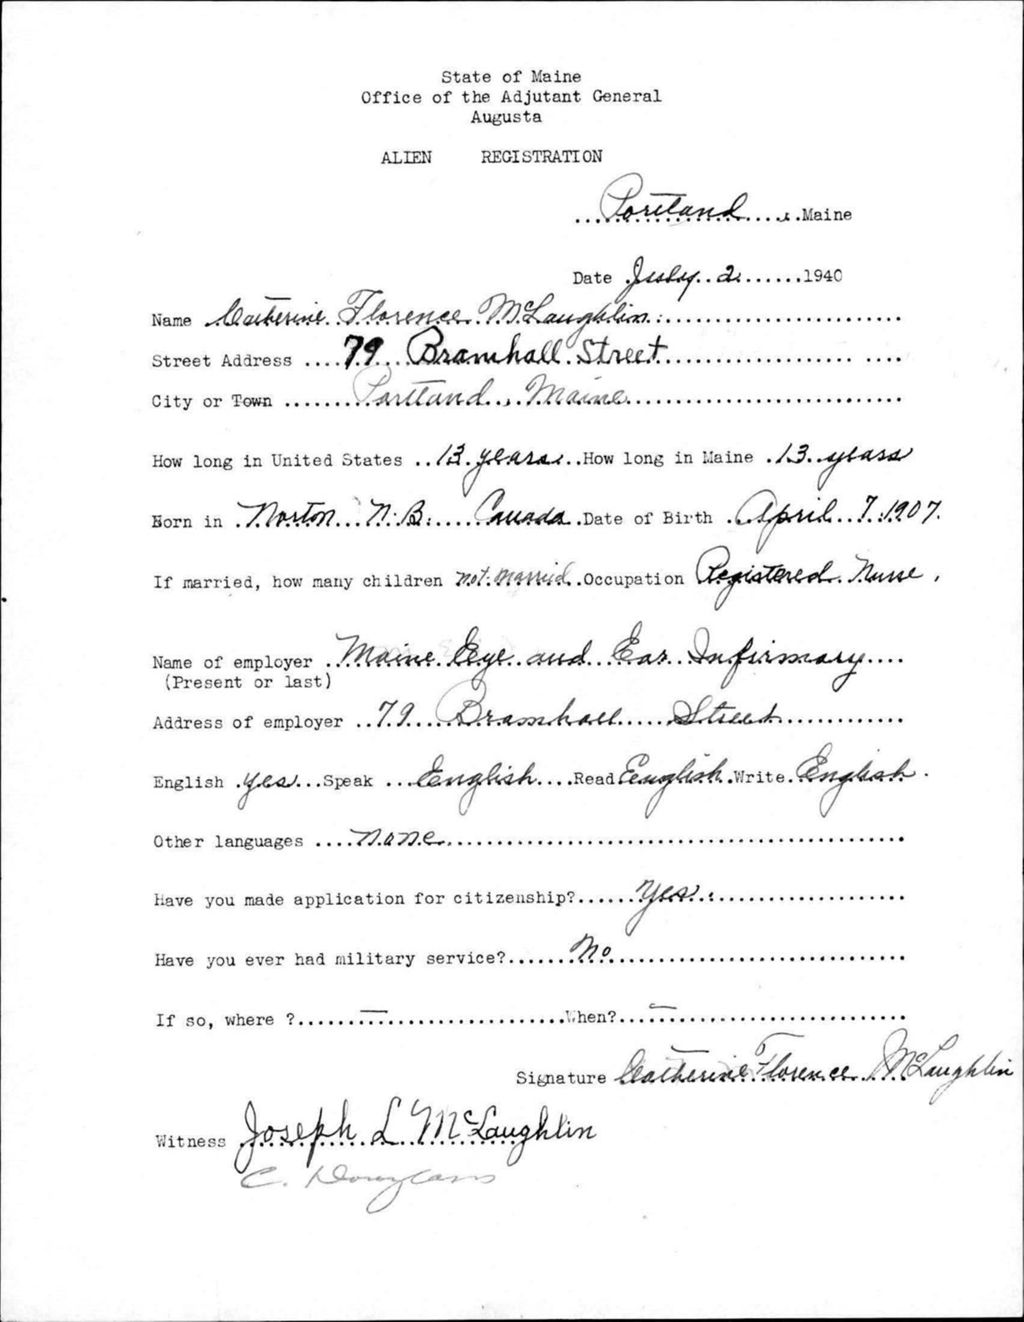 State of Maine
Office of the Adjutant General
Augusta
ALIEN REGISTRATION
Portland, Maine
Date July 2 1940
Name Catherine Florence McLaughlin
Street Address 79 Bramhall Street
City or Town Portland, Maine
How long in United States 13 years How long in Maine 13 years
Born in Norton N.B. Canada Date of Birth April 7, 1907.
If married, how many children not married Occupation Registered Nurse.
Name of employer Maine Eye and Ear Infirmary
(Present or last)
Address of employer 79 Bramhall Street
English yes Speak English Read English Write English.
Other languages none
Have you made application for citizenship? Yes
Have you ever had military service? No
If so, where ? — When? —
Signature Catherine Florence McLaughlin
Witness Joseph L McLaughlin
C.